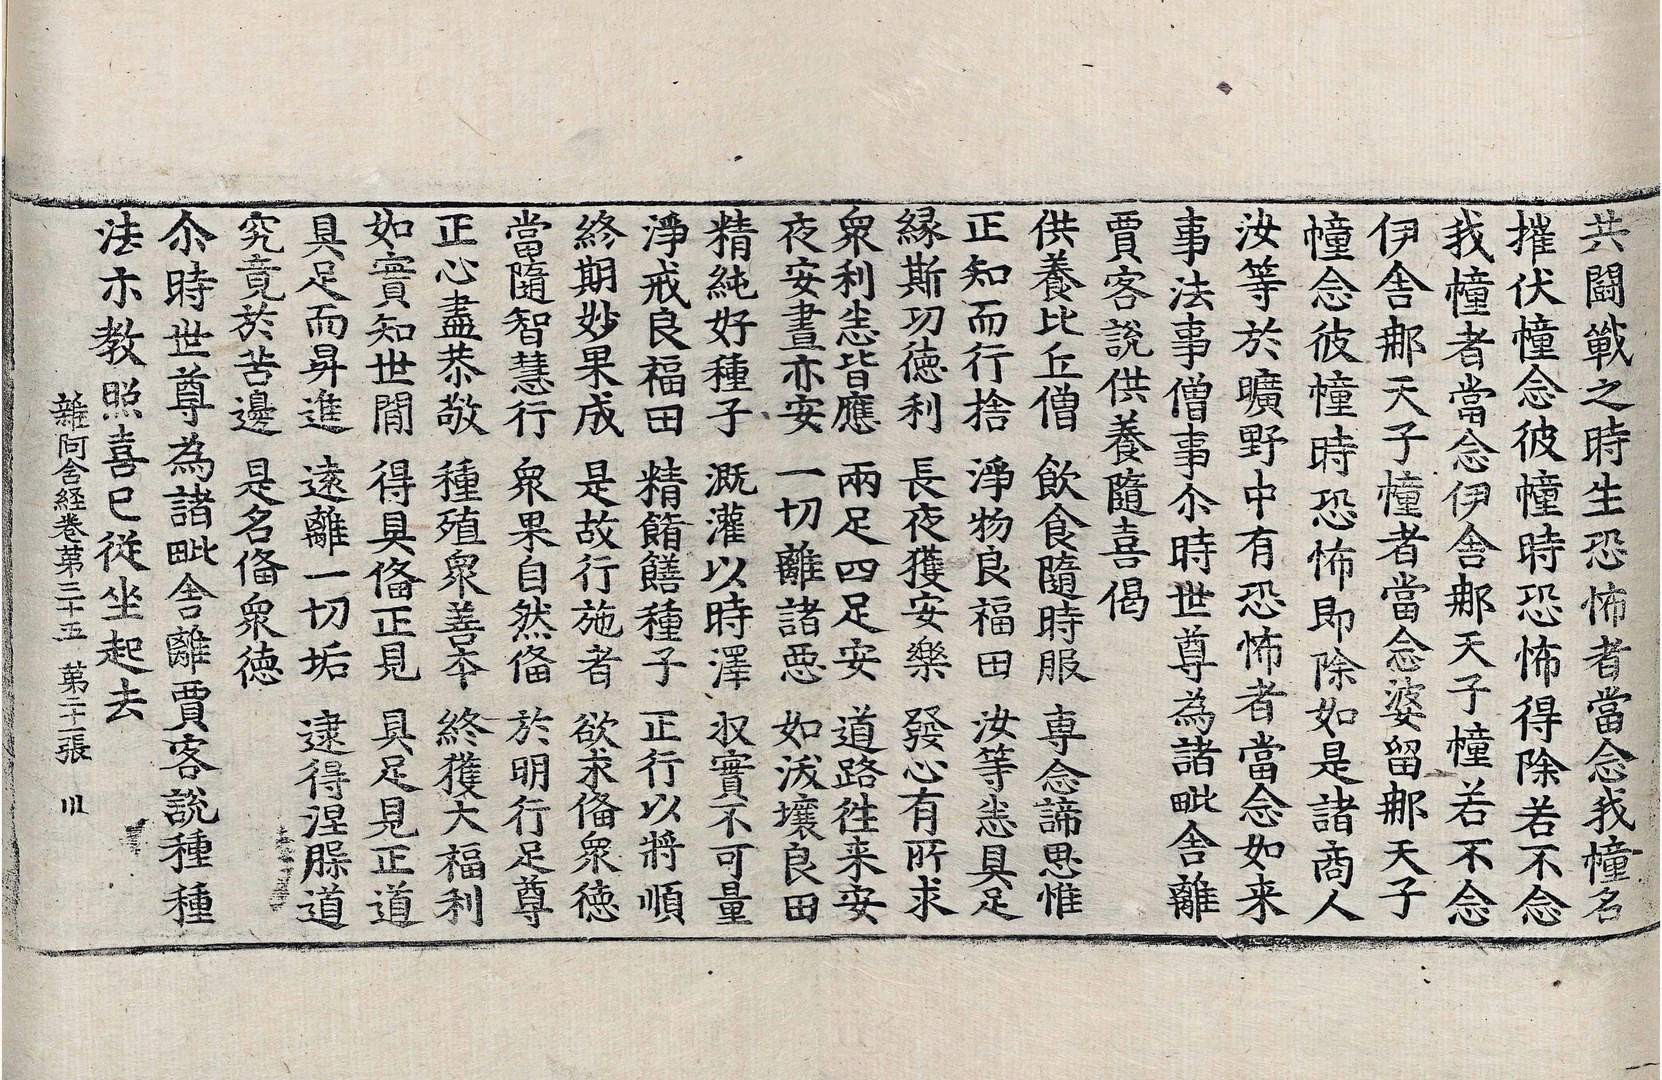 共闘戰之時生恐怖者當念我幢名
摧伏幢念彼幢時恐怖得除若不念
我幢者當念伊舍那天子幢若不念
伊舍那天子幢者當念婆留那天子
幢念彼幢時恐怖即除如是諸商人
汝等於曠野中有恐怖者當念如来
事法事僧事尒時世尊為諸毗舍離
賈客說供養隨喜偈
供養比丘僧 飲食隨時服 専念諦思惟
正知而行捨 淨物良福田 汝等悉具足
縁斯功德利 長夜獲安樂 發心有所求
衆利悉皆應 兩足四足安 道路徃来安
夜安晝亦安 一切離諸惡 如沃壤良田
精純好種子 溉灌以時澤 収實不可量
淨戒良福田 精餚饍種子 正行以將順
終期妙果成 是故行施者 欲求俻衆徳
當隨智慧行 衆果自然俻 於明行足尊
正心盡恭敬 種殖衆善夲 終獲大福利
如實知世間 得具俻正見 具足見正道
具足而昇進 遠離一切垢 逮得涅槃道
究竟於苦邊 是名俻衆徳
尒時世尊為諸毗舍離賈客說種種
法示教照喜已從坐起去
雜阿含経卷第三十五 第二十二張